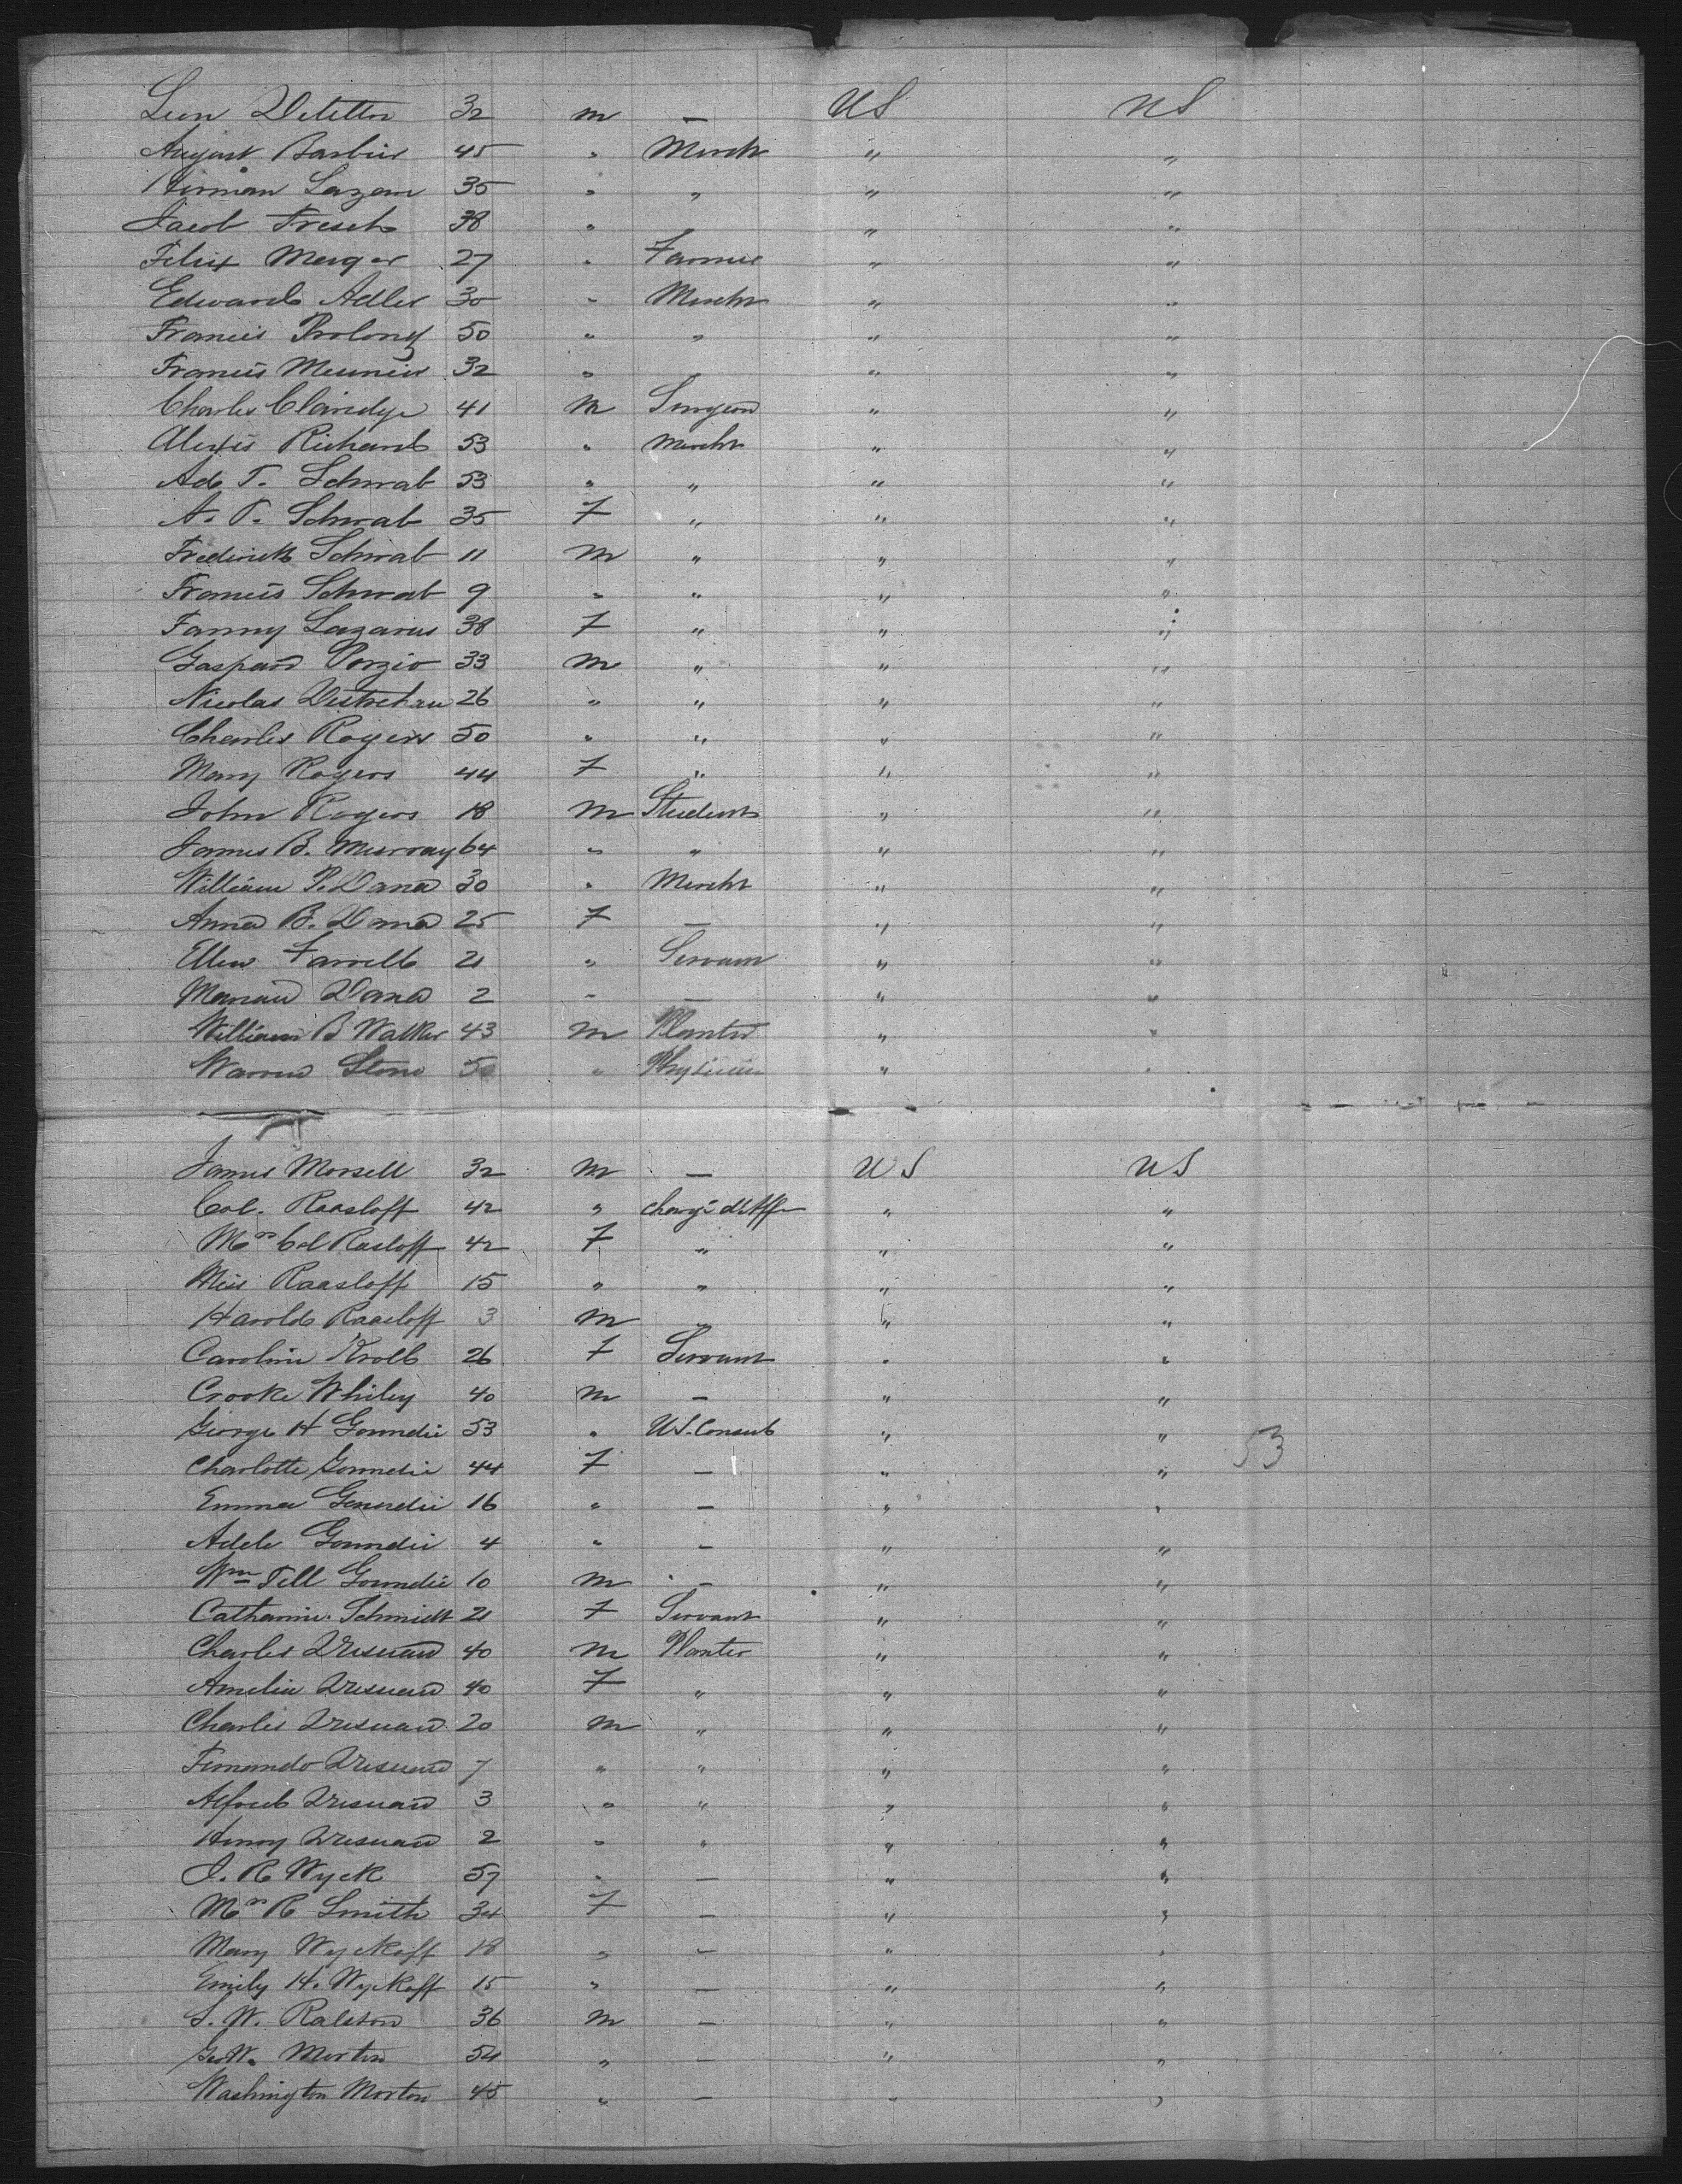 Leon 32 m — US US
August Barbier 45 " Mercht " "
Hirman Lazare 35 " " " "
Jacob Fresch 38 " " " "
Felix Merger 27 " Farmer " "
Edward Adler 30 " Mercht " "
Francis Prolong 50 " " " "
Francis Meunier 32 " " " "
Charles Claridge 41 m Surgeon " "
Alexis Richard 53 " Mercht " "
Ad T. Schwab 53 " " " "
A. T. Schwab 35 F " " "
Frederick Schwab 11 m " " "
Francis Schwab 9 " " " "
Fanny Lazarus 38 F " " "
Gaspard Porzio 33 m " " "
Nicolas Destrehan 26 " " " "
Charles Rogers 50 " " " "
Mary Rogers 44 F " " "
John Rogers 18 m Student " "
James B. Murray 64 " " " "
William P. Dana 30 " Mercht " "
Anna B. Dana 25 F — " "
Ellen Farrell 21 " Servant " "
Marian Dana 2 " — " "
William B Walker 43 m Planter " "
Warren Stone 50 " Physician " "
James Morsell 32 m — US US
Col. Raasloff 42 " chargé d'Aff " "
Mrs Col Rasloff 42 F " " "
Miss Raasloff 15 " " " "
Harold Raasloff 3 m " " "
Caroline Kroll 26 F Servant " "
Crooke Whiley 40 m — " "
George H Goundie 53 " U.S. Consul " "
53
Charlotte Goundie 44 F — " "
Emma Goundie 16 " — " "
Adele Goundie 4 " — " "
Wm Tell Goundie 10 m — " "
Catharine Schmidt 21 F Servant " "
Charles 40 m Planter " "
Amelia 40 F " " "
Charles 20 m " " "
Fernando 7 " " " "
Alfred 3 " " " "
Henry 2 " " " "
J. R Wyck 57 " — " "
Mrs R Smith 34 F — " "
Mary Wyckoff 18 " — " "
Emily H. Wyckoff 15 " — " "
S. W. Ralston 36 m — " "
Geo W. Morton 54 " — " "
Washington Morton 45 " — " "